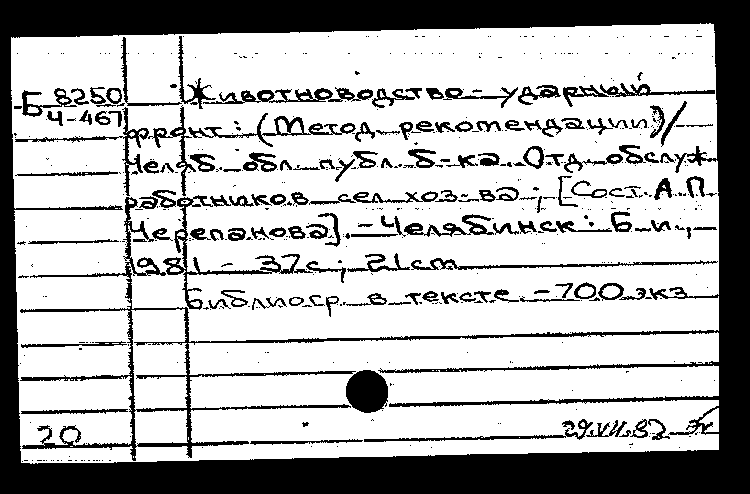 Б 8250
Ч-467
Животноводство - ударный
фронт: (Метод. рекомендации)/
Челяб. обл. публ. б-ка. Отд. обслуж.
работников сел. хоз-ва; [Сост. А.П.
Черепанова]. - Челябинск: Б. и.,
1981 - 37с; 21cm
Библиогр. в тексте. - 700 экз
20 29.VII.82